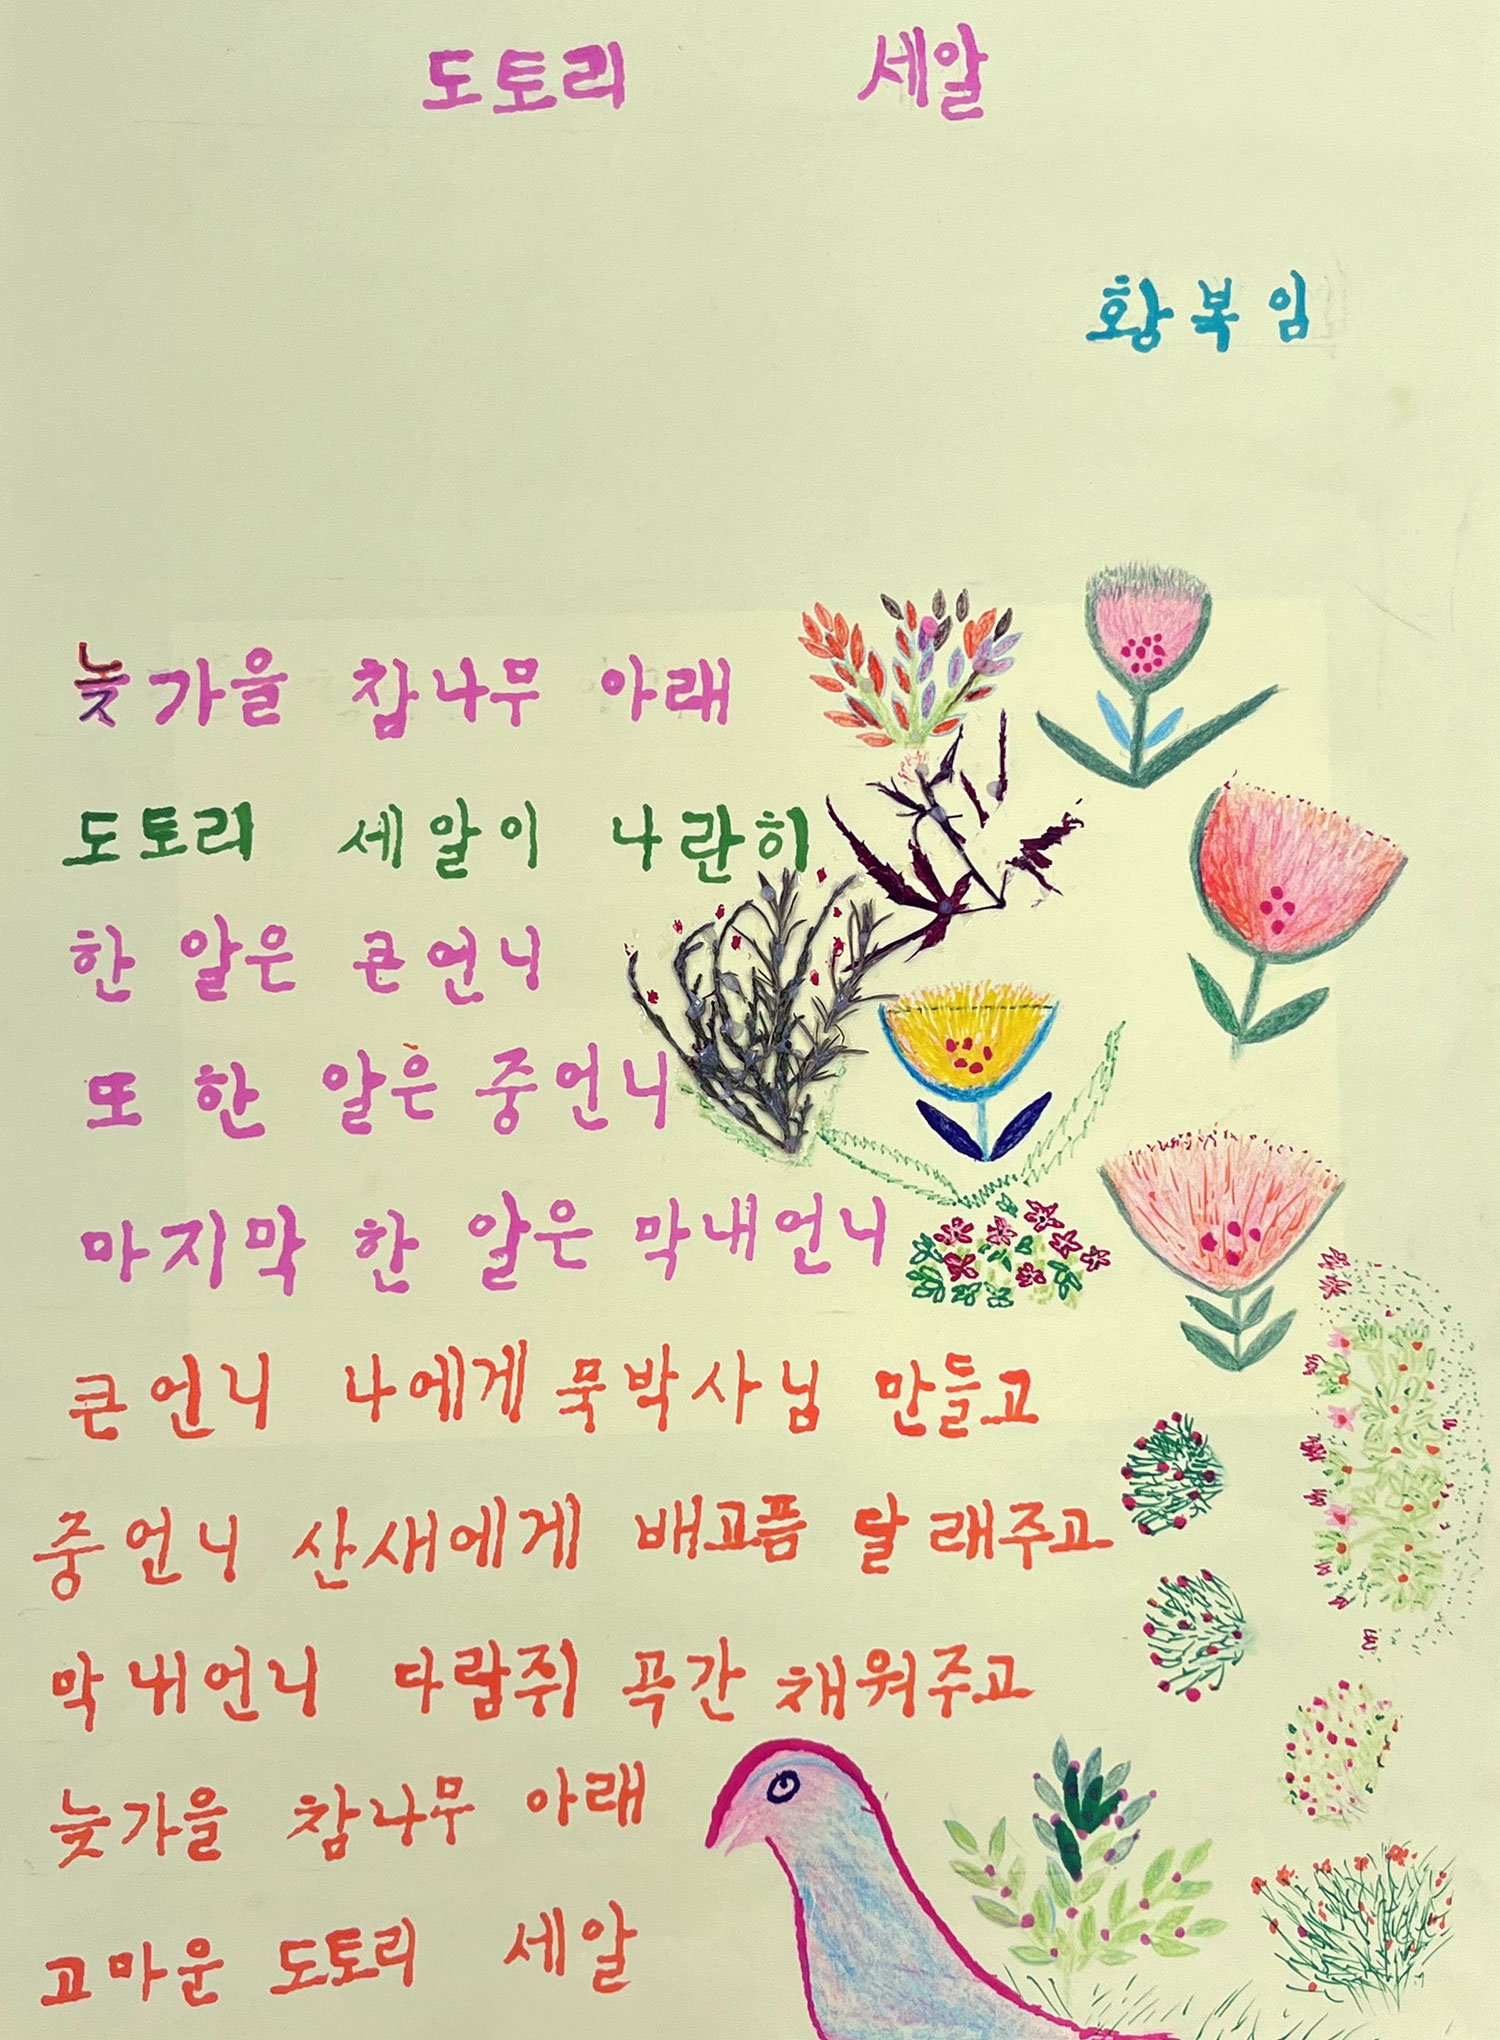 도토리 세알
황복임
늦가을 참나무 아래
도토리 세알이 나란히
한 알은 큰언니
또 한 알은 중언니
마지막 한 알은 막내언니
큰언니 나에게 묵박사님 만들고
중언니 산새에게 배고픔 달래주고
막내언니 다람쥐 곡간 채워주고
늦가을 참나무 아래
고마운 도토리 세알